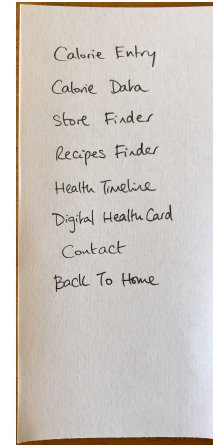 Calorie Entry
Calorie Data
Store Finder
Recipes Finder
Health Timeline
Digital Health Card
Contact
Back To Home